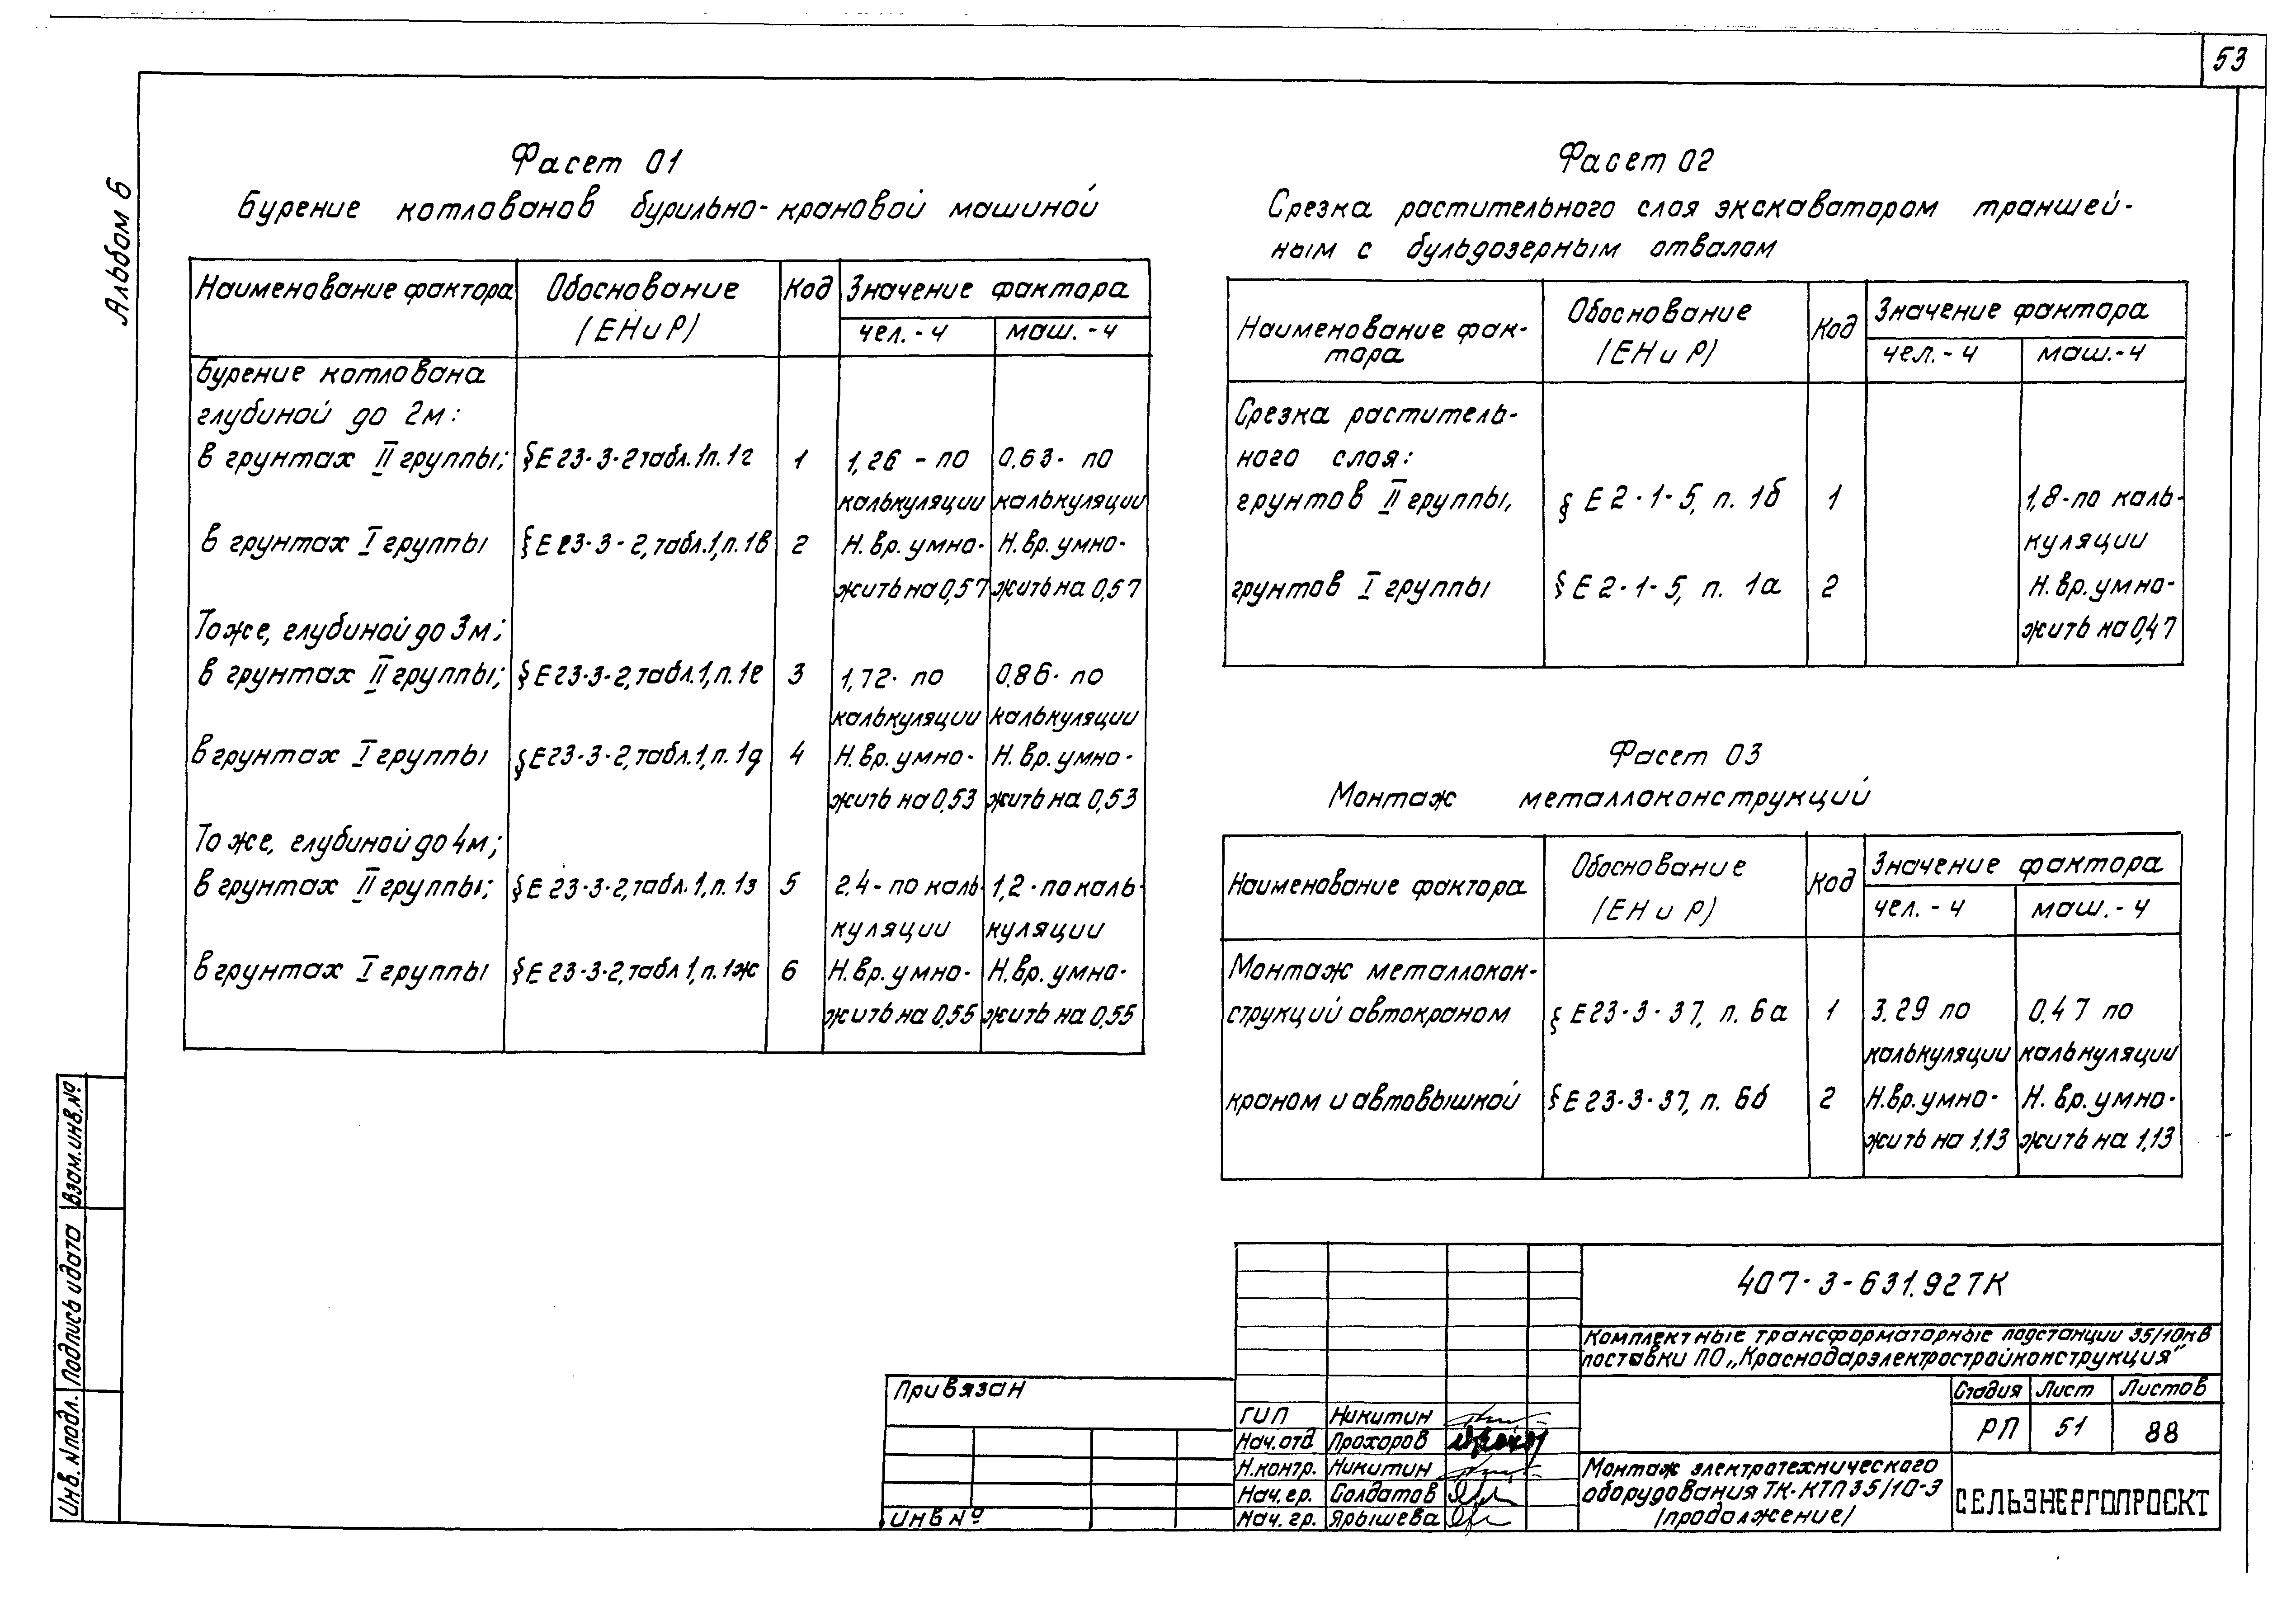 53
Альбом 6
Фасет 01
Бурение котлованов бурильно-крановой машиной
Наименование фактора Обоснование (ЕНиР) Код Значение фактора
чел.-ч маш.-ч
Бурение котлована
глубиной до 2м:
в грунтах II группы; §Е23-3-2табл.1п.1г 1 1,26 - по 0,63- по
калькуляции калькуляции
в грунтах I группы §Е23-3-2,табл.1,п.1в 2 Н.вр.умно- Н.вр.умно-
жить на 0,57 жить на 0,57
То же, глубиной до 3м;
в грунтах II группы; §Е23-3-2,табл.1,п.1е 3 1,72- по 0,86- по
калькуляции калькуляции
в грунтах I группы §Е23-3-2,табл.1,п.1д 4 Н.вр.умно- Н.вр.умно-
жить на 0,53 жить на 0,53
То же, глубиной до 4м;
в грунтах II группы; §Е23-3-2,табл.1,п.1з 5 2,4-по каль- 1,2-по каль-
куляции куляции
в грунтах I группы §Е23-3-2,табл1,п.1ж 6 Н.вр.умно- Н.вр.умно-
жить на 0,55 жить на 0,55
Фасет 02
Срезка растительного слоя экскаватором траншей-
ным с бульдозерным отвалом
Наименование фак- Обоснование Код Значение фактора
тора (ЕНиР) чел.-ч маш.-ч
Срезка раститель-
ного слоя:
грунтов II группы, § Е2-1-5, п. 1б 1 1,8-по каль-
куляции
грунтов I группы § Е2-1-5, п. 1а 2 Н.вр.умно-
жить на 0,47
Фасет 03
Монтаж металлоконструкций
Наименование фактора Обоснование Код Значение фактора
(ЕНиР) чел.-ч маш.-ч
Монтаж металлокон-
струкций автокраном § Е23-3-37, п. 6а 1 3.29 по 0.47 по
калькуляции калькуляции
краном и автовышкой § Е23-3-37, п. 6б 2 Н.вр.умно- Н.вр.умно-
жить на 1,13 жить на 1,13
Инв.№подл. Подпись и дата Взам.инв.№
Привязан
ИНВ№
ГИП Никитин
Нач.отд Прохоров
Н.контр. Никитин
Нач.гр. Солдатов
Нач.гр. Ярышева
407-3-631.92ТК
Комплектные трансформаторные подстанции 35/10кв
поставки ПО „Краснодарэлектростройконструкция"
Стадия Лист Листов
РП 51 88
Монтаж электротехнического
оборудования ТК-КТП35/10-3
/продолжение/
СЕЛЬЭНЕРГОПРОЕКТ